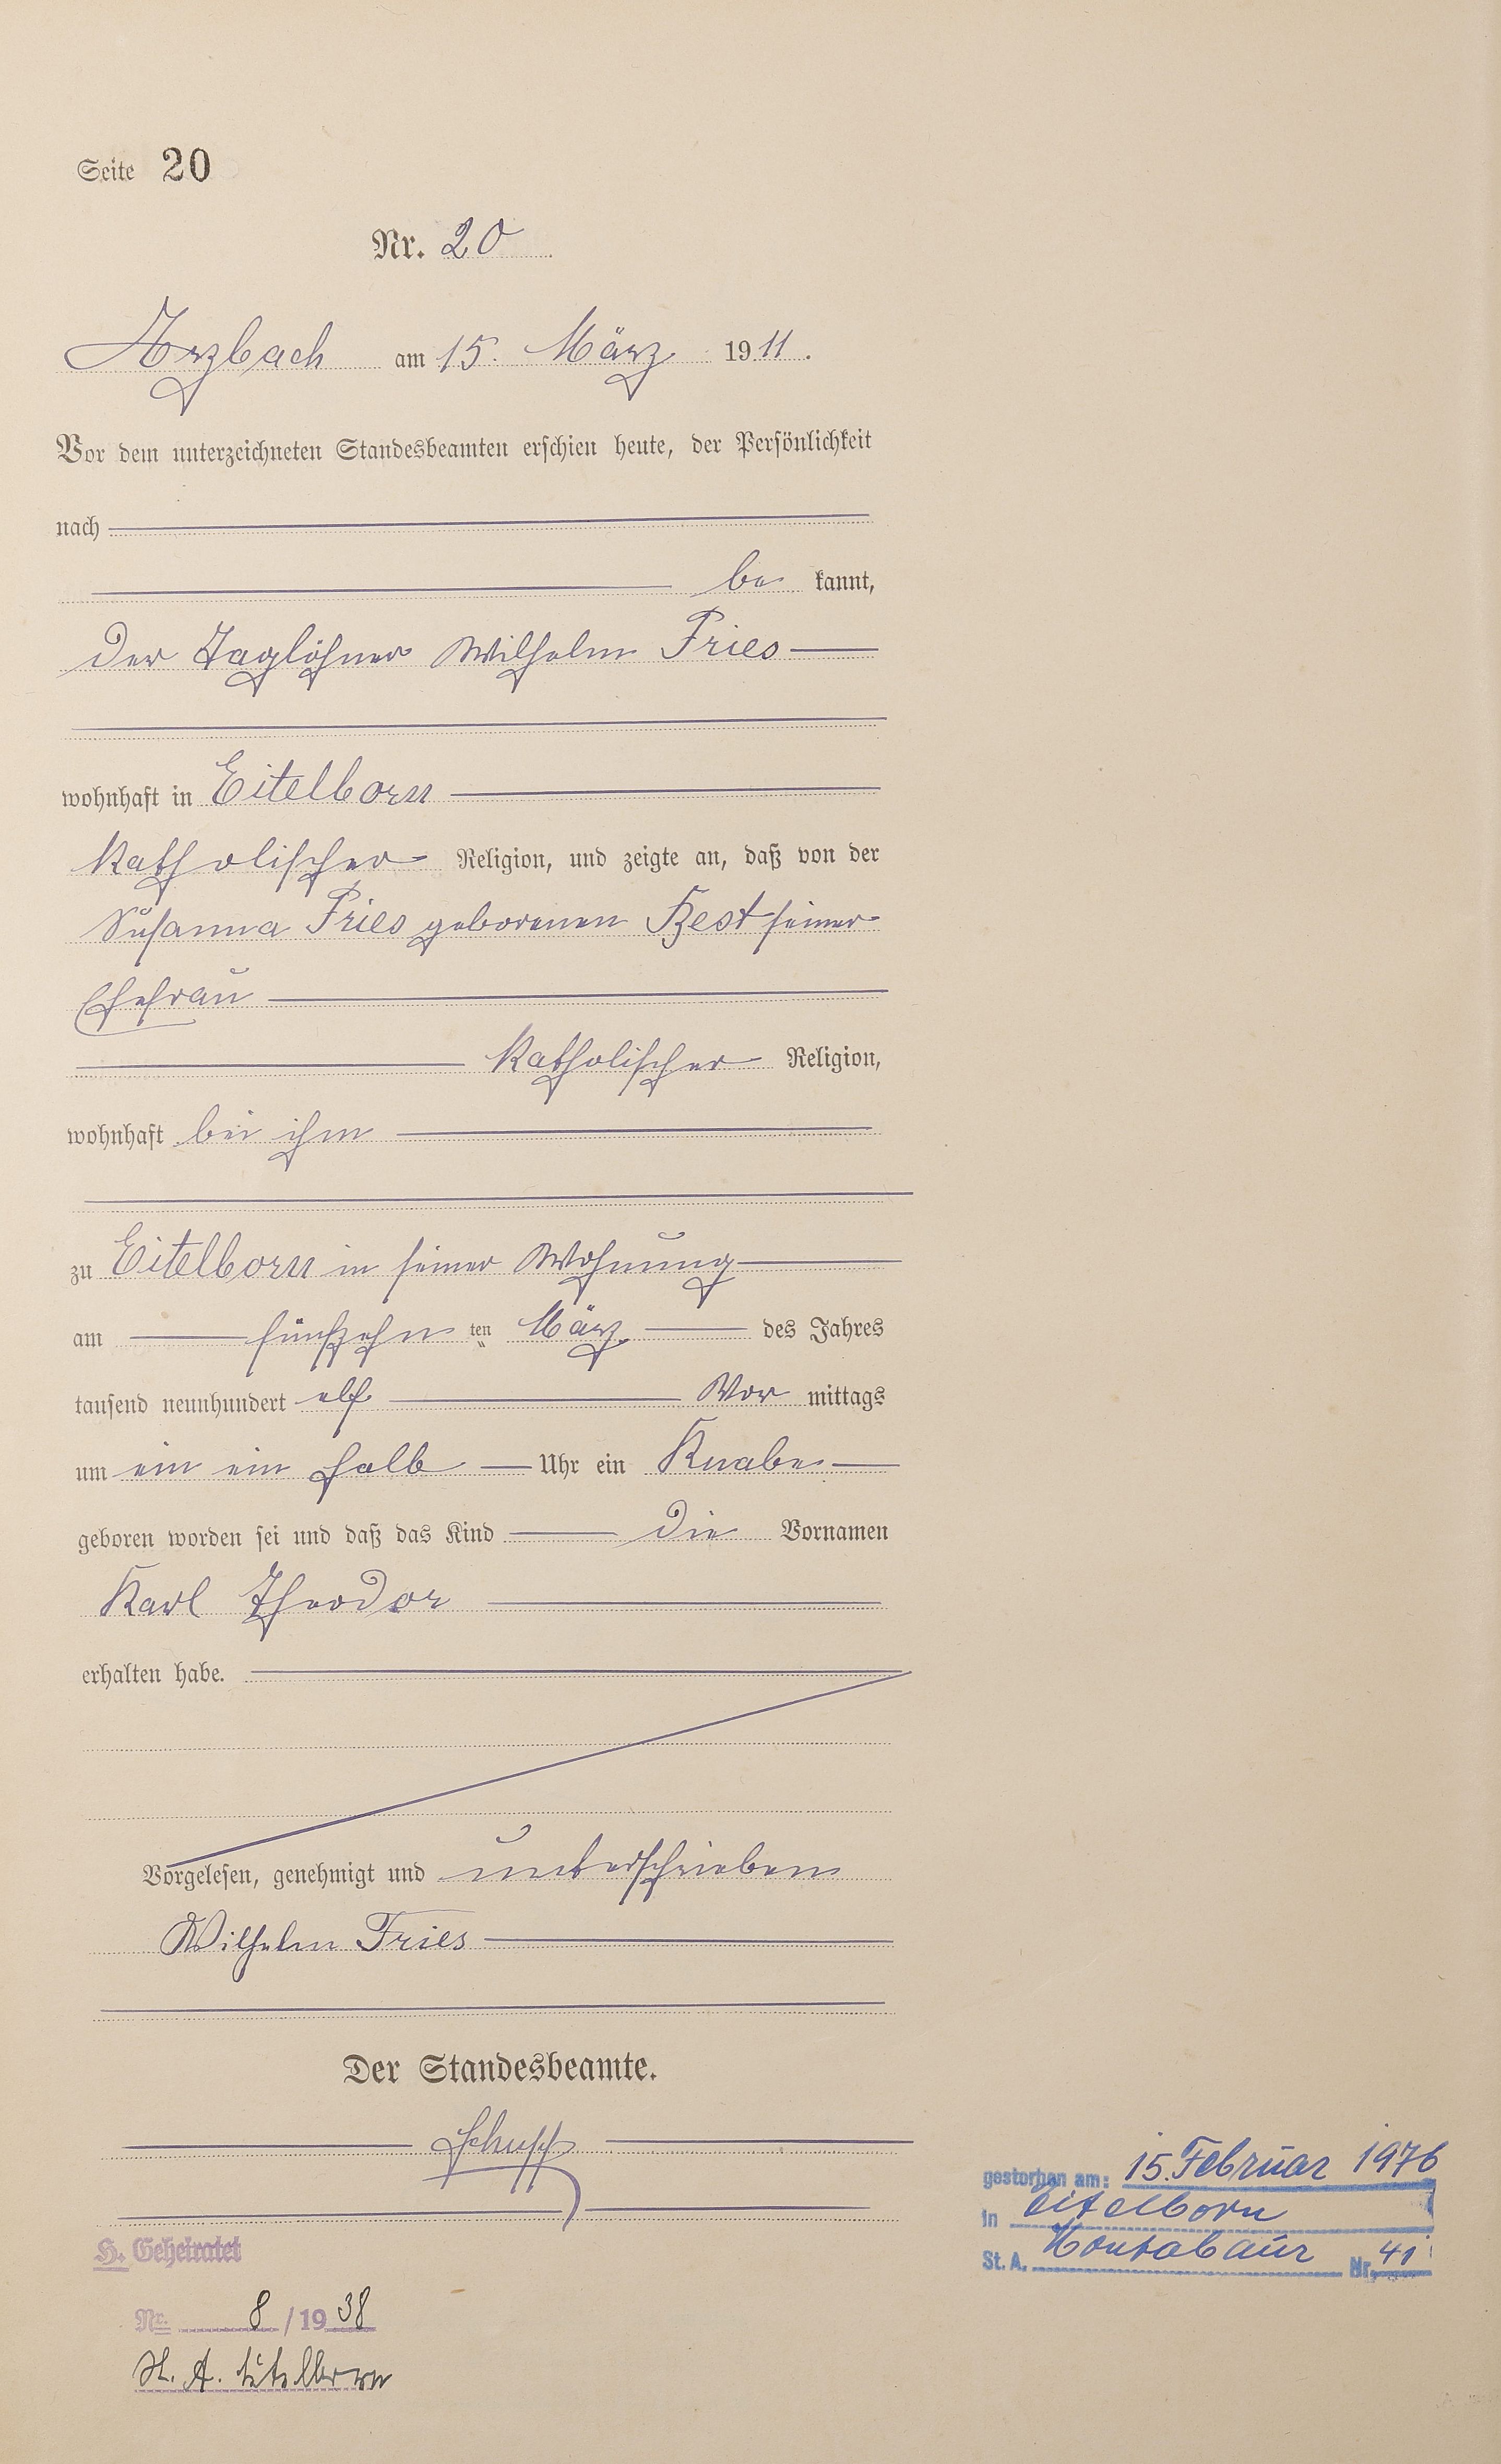 Seite 20
Nr. 20
Arzbach am 15. März 1911.
Vor dem unterzeichneten Standesbeamten erschien heute, der Persönlichkeit
nach
be kannt,
der Taglöhner Wilhelm Fries
wohnhaft in Eitelborn
katholischer Religion, und zeigte an, daß von der
Susanna Fries geborenen Best seiner
Ehefrau
katholischer Religion,
wohnhaft bei ihm
zu Eitelborn in seiner Wohnung
am fünfzehn ten März des Jahres
tausend neunhundert elf Vor mittags
um ein ein halb Uhr ein Knabe
geboren worden sei und daß das Kind die Vornamen
Karl Theodor
erhalten habe.
Vorgelesen, genehmigt und unterschrieben
Wilhelm Fries
Der Standesbeamte.
Schupp
gestorben am: 15. Februar 1976
in Eitelborn
St. A. Montabaur Nr. 41
H. Geheiratet
Nr. 8/1938
St. A. Eitelborn